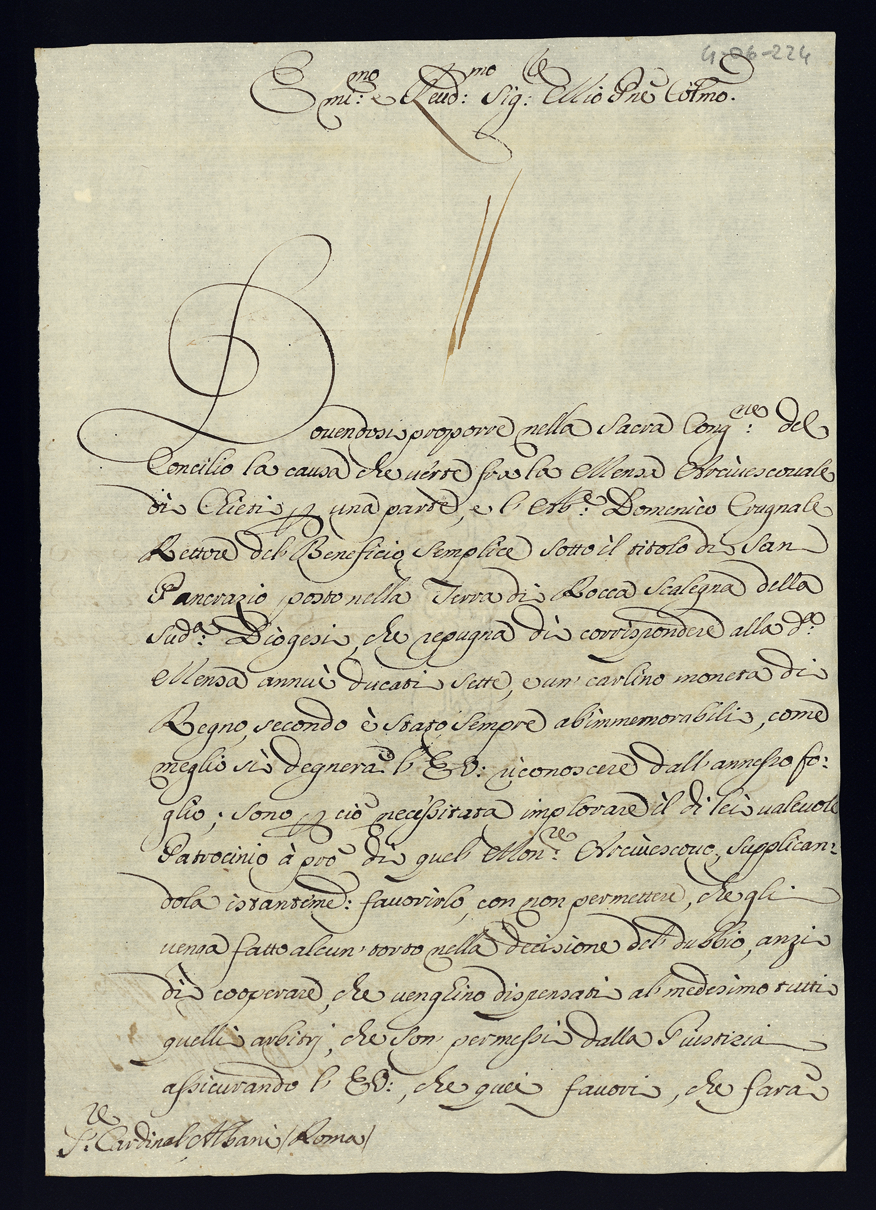 4-06-224
Em:mo e Reud:mo Sig:re Mio Pne Colmo.
Douendosi proporre nella Sacra Cong:ne del
Concilio la causa che uerte fra la Mensa Arciuescouale
di Chieti per una parte, e l'Ab:e Domenico Crugnale
Rettore del Beneficio Semplice Sotto il titolo di San
Pancrazio posto nella Terra di Rocca Scalegna della
Sud:a Diogesi, che repugna di corrispondere alla d:a
Mensa annui ducati Sette, e un' carlino moneta di
Regno, secondo è stato sempre ab'immemorabili, come
megli si degnerà l'E.V: riconoscere dall'annesso fo:
glio; sono per ciò necessitata implorare il di lei ualeuole
Patrocinio à prò di quel Mon:re Arciuescouo, supplican:
dola istanteme: fauorirlo, con non permettere, che gli
uenga fatto alcun' torto nella decisione del dubbio, anzi
di cooperare, che uenghino dispensati al medesimo tutti
quelli arbitrj, che Son' permessi dalla Giustizia
assicurando l'E.V:, che quei fauori, che farà
S:re Cardinal Albani (Roma)